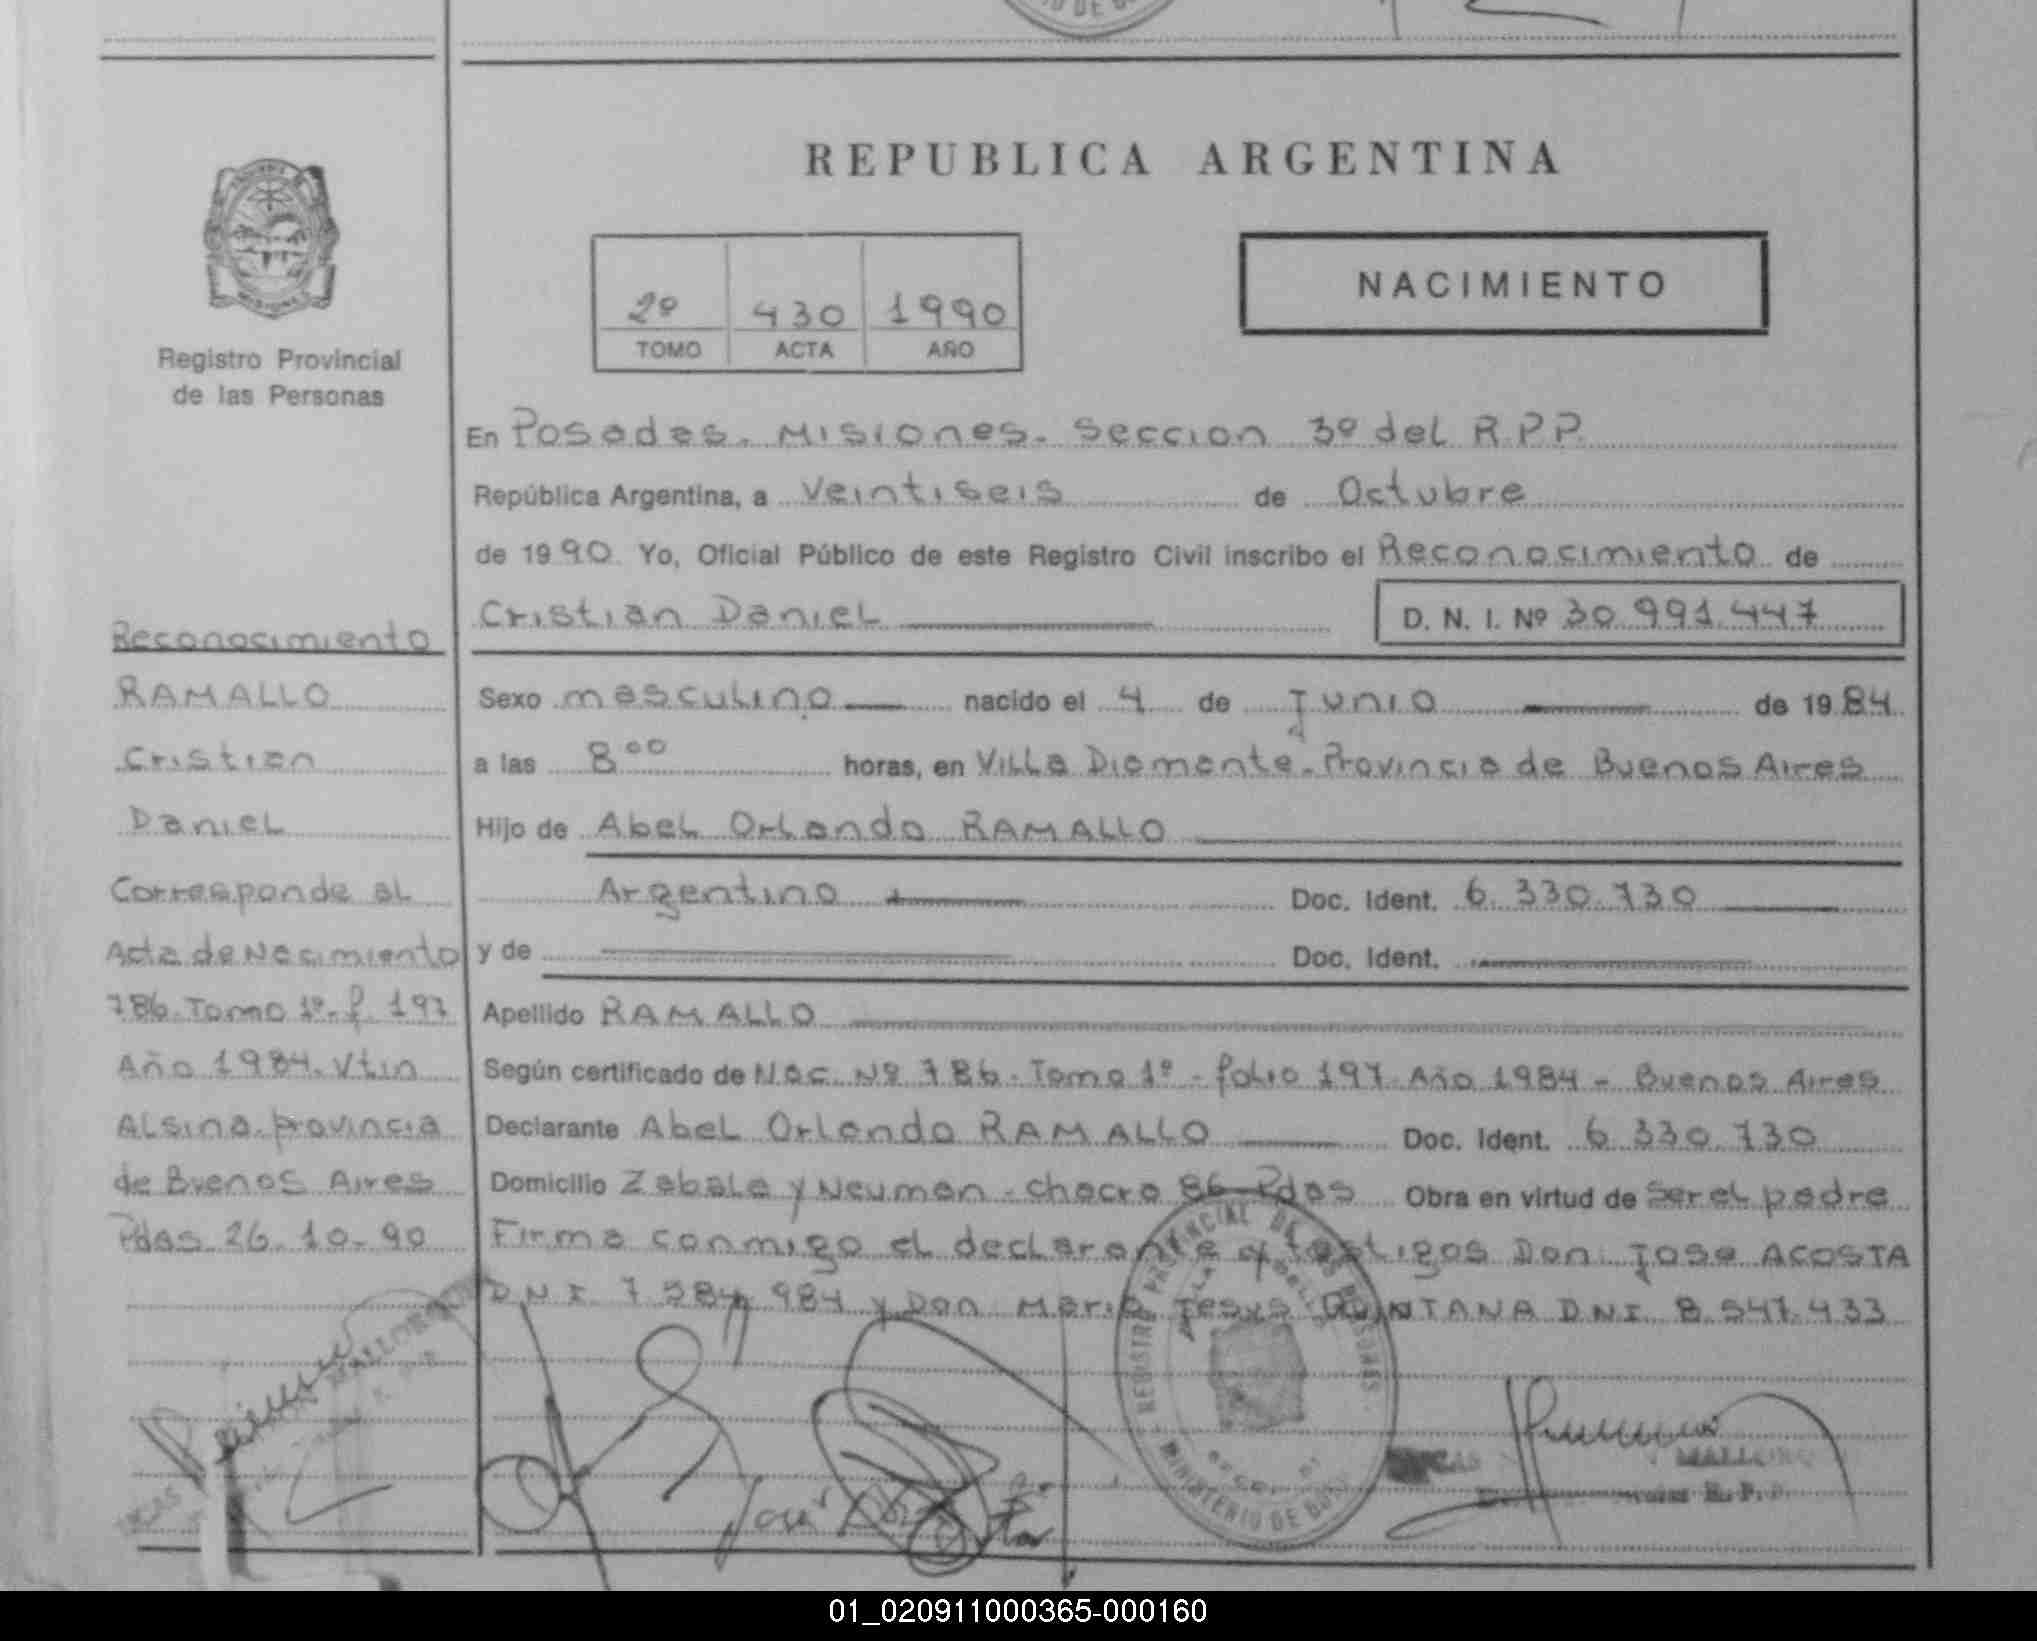 REPUBLICA ARGENTINA
NACIMIENTO
2º 430 1990
TOMO ACTA AÑO
Registro Provincial
de las Personas
En Posadas. Misiones. Seccion 3º del R.P.P.
República Argentina, a Veintiseis de Octubre
de 1990. Yo, Oficial Público de este Registro Civil inscribo el Reconocimiento de
Cristian Daniel D. N. I. Nº 30.991.447
Sexo masculino nacido el 4 de Junio de 1984
a las 8⁰⁰ horas, en Villa Diamante. Provincia de Buenos Aires
Hijo de Abel Orlando RAMALLO
Argentino Doc. Ident. 6.330.730
y de Doc. Ident.
Apellido RAMALLO
Según certificado de Nac. Nº 786. Tomo 1º - folio 197. Año 1984 - Buenos Aires
Declarante Abel Orlando RAMALLO Doc. Ident. 6.330.730
Domicilio Zabala y Neuman - chacra 86 - Pdas Obra en virtud de ser el padre
Firma conmigo el declarante y testigos Don: Jose ACOSTA
D.N.I. 7.584.984 y Don Mario Jesus QUINTANA D.N.I. 8.547.433
Reconocimiento
RAMALLO
Cristian
Daniel
Corresponde al
Acta de Nacimiento
786. Tomo 1º- f. 197
Año 1984. Vtin
Alsina. provincia
de Buenos Aires
Pdas. 26.10-90
REGISTRO PROVINCIAL DE LAS PERSONAS
MINISTERIO DE
R. P. P.
01_020911000365-000160